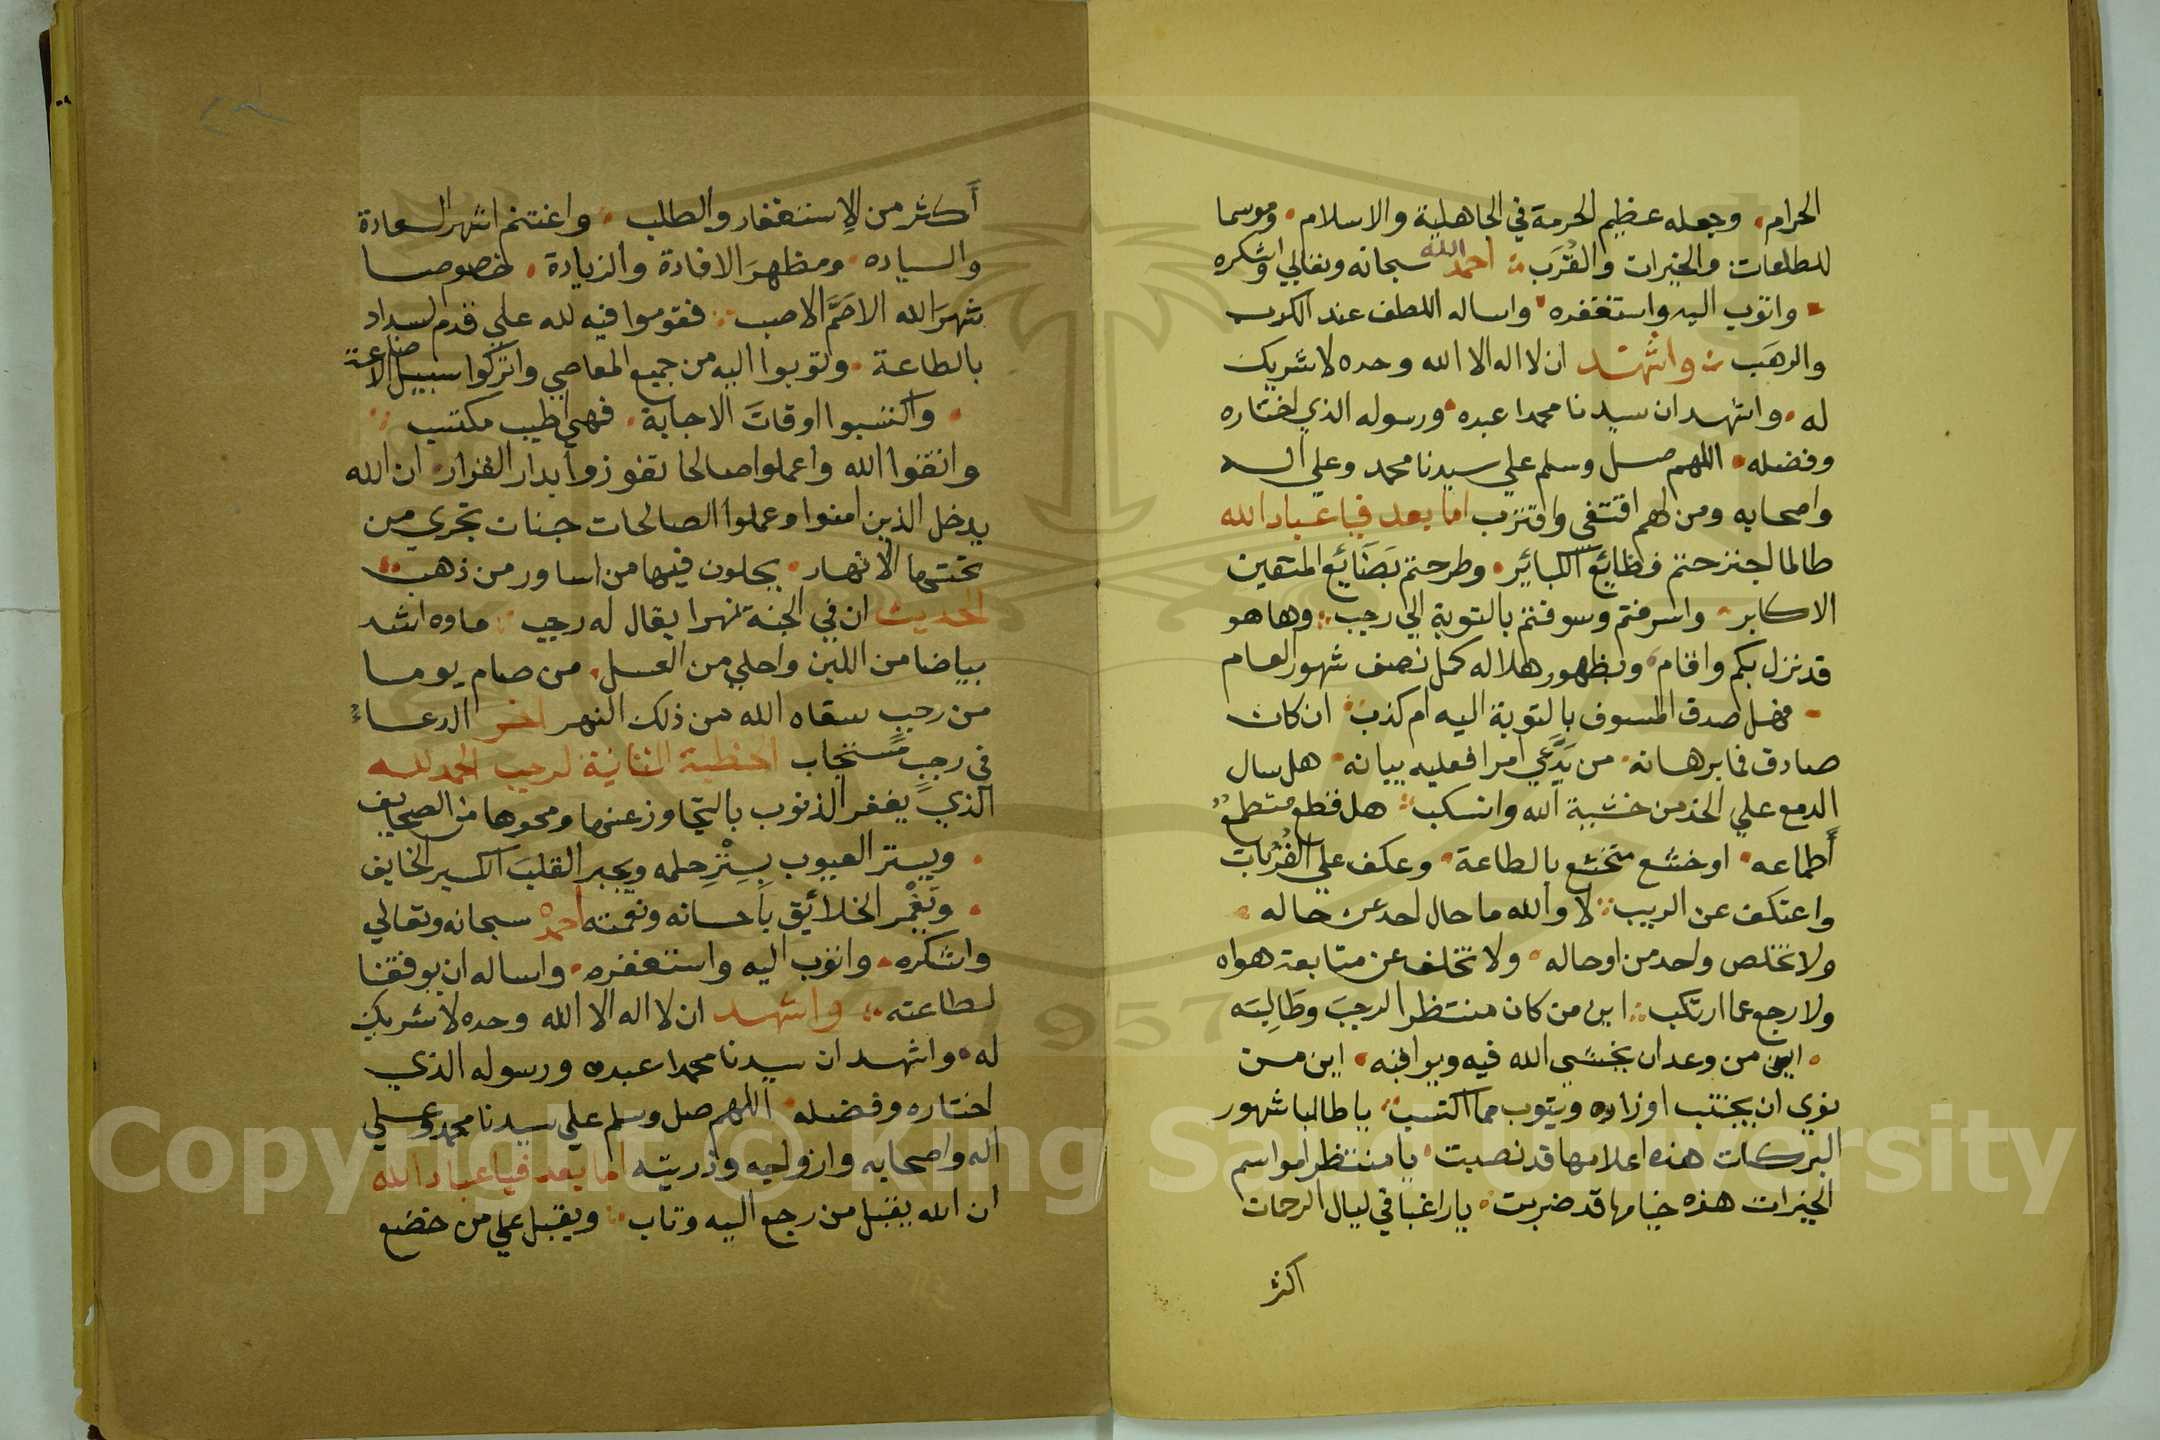 الحرام • وجعله عظيم الحرمة في الجاهلية والاسلام • وموسما
للطاعات والخيرات والقُرَب ∴ احمد الله سبحانه وتعالي واشكره
• واتوب اليه واستغفره • واساله اللطف عند الكرب
والرهَب ∴ واشهد ان لا اله الا الله وحده لا شريك
له • واشهد ان سيدنا محمدا عبده • ورسوله الذي اختاره
وفضله • اللهم صل وسلم علي سيدنا محمد وعلي اله
واصحابه ومن لهم اقتفي واقترب اما بعد فيا عباد الله
طالما جنحتم فظايع الكبائر • وطرحتم بضائع المتقين
الاكابر • واسرفتم وسوفتم بالتوبة الي رجب ∴ وها هو
قد نزل بكم واقام • وبظهور هلاله كمل نصف شهور العام
• فهل صدق المسوف بالتوبة اليه ام كذب ∴ ان كان
صادق فما برهانه • من يَدَّعي امرا فعليه بيانه • هل سال
الدمع علي الخد من خشية الله وانسكب ∴ هل قطع متطمع
أطماعه • او خشع متخشع بالطاعة • وعكف علي القُربات
واعتكف عن الريب ∴ لا والله ما حال احد عن حاله •
ولا تخلص واحد من اوحاله • ولا تخلف عن متابعة هواه
ولا رجع عما ارتكب ∴ اين من كان منتظرا لرجبَ وطَالِبَه
• اين من وعد ان يخشي الله فيه ويراقبه • اين من
نوي ان يجتنب اوزاره ويتوب مما اكتسب ∴ يا طالبا شهور
البركات هذه اعلامها قد نصبت • يا منتظرا مواسم
الخيرات هذه خيامها قد ضربت • يا راغبا في ليال الرحمات
اكثر
أَكثر من الإستغفار والطلب ∴ واغتنم اشهر السعادة
والسياده • ومظهرَ الافادة والزيادة • خصوصا
شهرَ الله الاصَمَّ الاصب ∴ فقوموا فيه لله علي قدم السداد
بالطاعة • وتوبوا اليه من جميع المعاصي واتركوا سبيل الاضاعة
• واكتسبوا اوقاتَ الاجابة • فهي اطيب مكتسب ∴
واتقوا الله واعملوا صالحا تفوزوا بدار القرار • ان الله
يدخل الذين امنوا وعملوا الصالحات جنات تجري من
تحتها الانهار • يحلون فيها من اساور من ذهب ∴
الحديث ان في الجنة نهرا يقال له رجب ∴ ماوه اشد
بياضا من اللبن واحلي من العسل • من صام يوما
من رجب سقاه الله من ذلك النهر اخر الدعاءُ
في رجبٍ مستجاب الخطبة الثانية لرجب الحمد لله
الذي يغفر الذنوب بالتجاوز عنها ومحوها من الصحايف
• ويستر العيوب بِسِتْرِ حلمه ويجبر القلبَ الكسير الخايف
• ويَغْمُر الخلائق بَاحسانه ونعمته أحمده سبحانه وتعالي
واشكره • واتوب اليه واستغفره • واساله ان يوفقنا
لطاعته ∴ واشهد ان لا اله الا الله وحده لا شريك
له • واشهد ان سيدنا محمدا عبده ورسوله الذي
اختاره وفضله • اللهم صل وسلم علي سيدنا محمد وعلي
اله واصحابه وازواجه وذريته اما بعد فيا عباد الله
ان الله يقبل من رجع اليه وتاب ∴ ويقبل علي من خضع
Copyright © King Saud University
1957